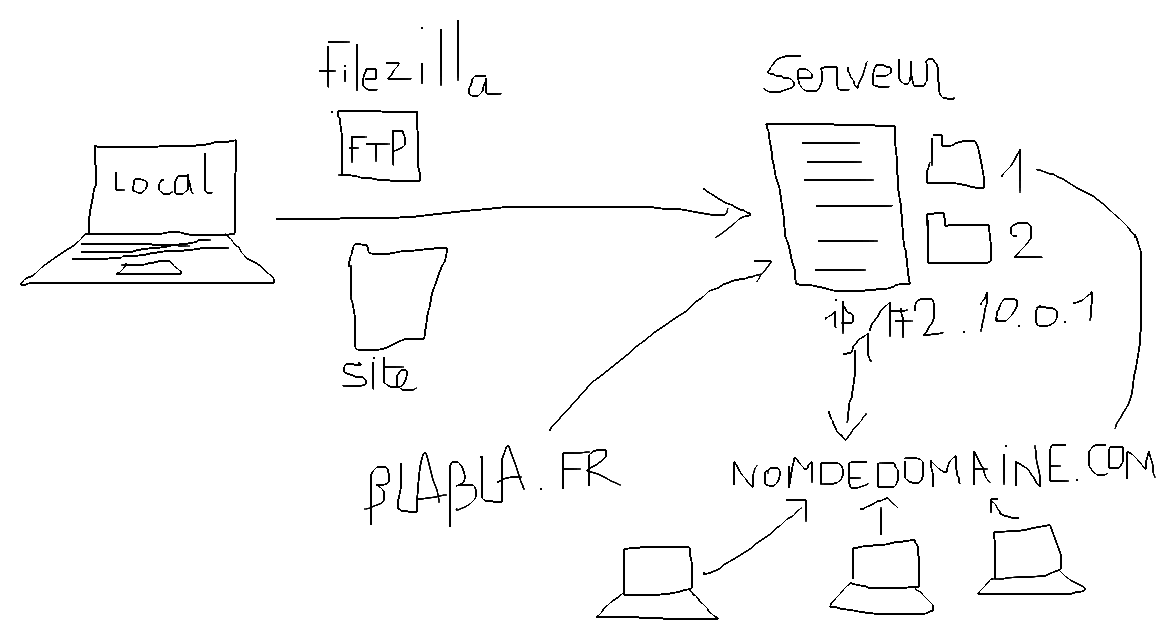 Filezilla
FTP
Local
site
Serveur
1
2
ip 172.10.0.1
BLABLA.FR
NOMDEDOMAINE.COM